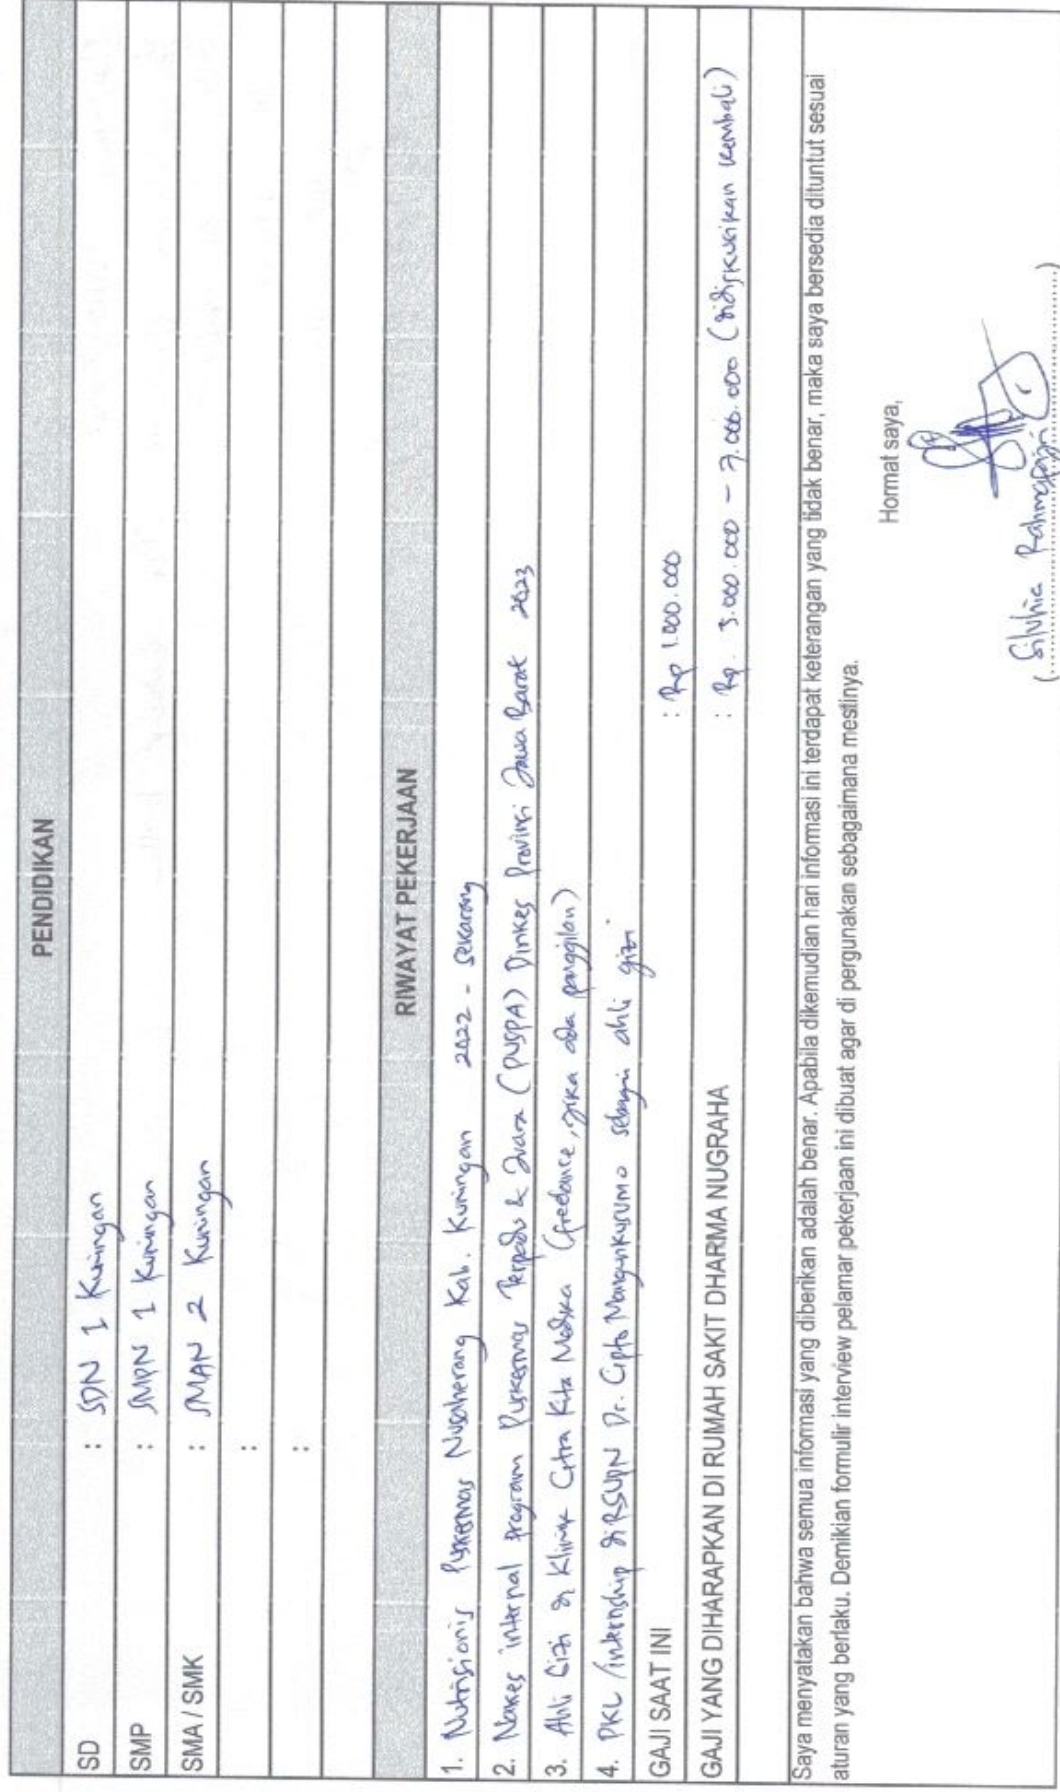 PENDIDIKAN
SD : SDN 1 Kuningan
SMP : SMPN 1 Kuningan
SMA / SMK : SMAN 2 Kuningan
:
:
RIWAYAT PEKERJAAN
1. Nutrisionis Puskesmas Nusaherang Kab. Kuningan 2022 - sekarang
2. Nakes internal program Puskesmas Terpadu & Juara (PUSPA) Dinkes Provinsi Jawa Barat 2023
3. Ahli Gizi di Klinik Citra Kita Medika (freelance, jika ada panggilan)
4. PKL / internship di RSUPN Dr. Cipto Mangunkusumo sebagai ahli gizi
GAJI SAAT INI : Rp 1.000.000
GAJI YANG DIHARAPKAN DI RUMAH SAKIT DHARMA NUGRAHA : Rp. 3.000.000 - 7.000.000 (didiskusikan kembali)
Saya menyatakan bahwa semua informasi yang diberikan adalah benar. Apabila dikemudian hari informasi ini terdapat keterangan yang tidak benar, maka saya bersedia dituntut sesuai
aturan yang berlaku. Demikian formulir interview pelamar pekerjaan ini dibuat agar di pergunakan sebagaimana mestinya.
Hormat saya,
(Silvhia Rahmaputri)